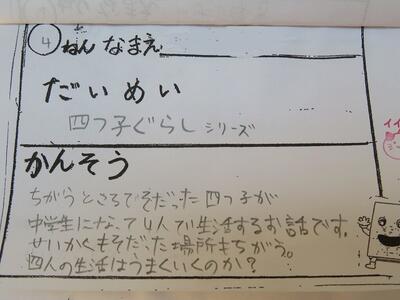 ④ねん なまえ
だいめい
四つ子ぐらし シリーズ
かんそう
ちがうところでそだった四つ子が
中学生になって4人で生活するお話です。
せいかくもそだった場所もちがう。
四人の生活はうまくいくのか?